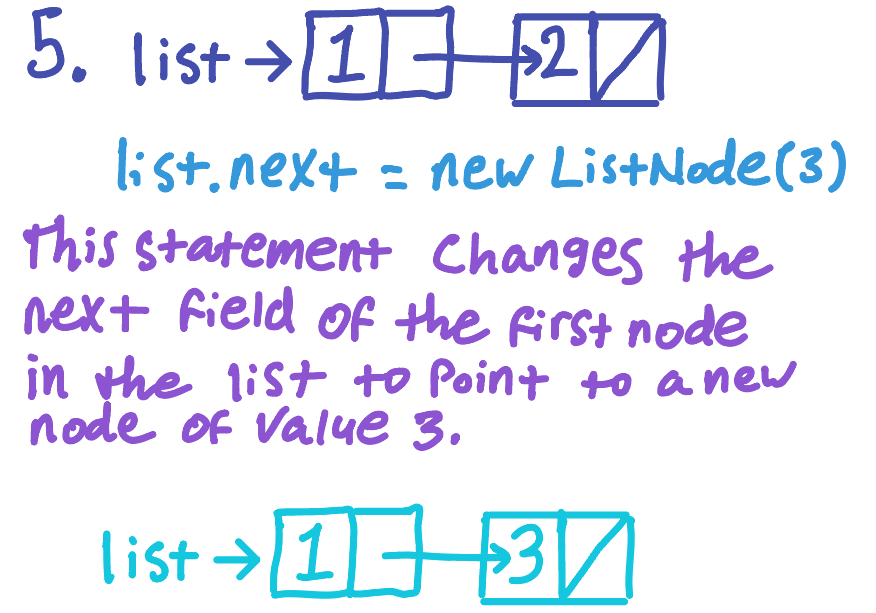 5. list → 1 → 2
list.next = new ListNode(3)
This statement changes the
next field of the first node
in the list to point to a new
node of value 3.
list → 1 → 3